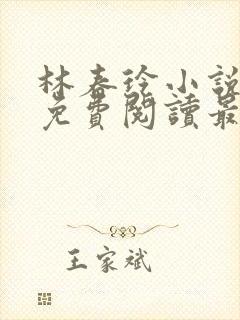 林春玲小說
免費閱讀最
王家斌